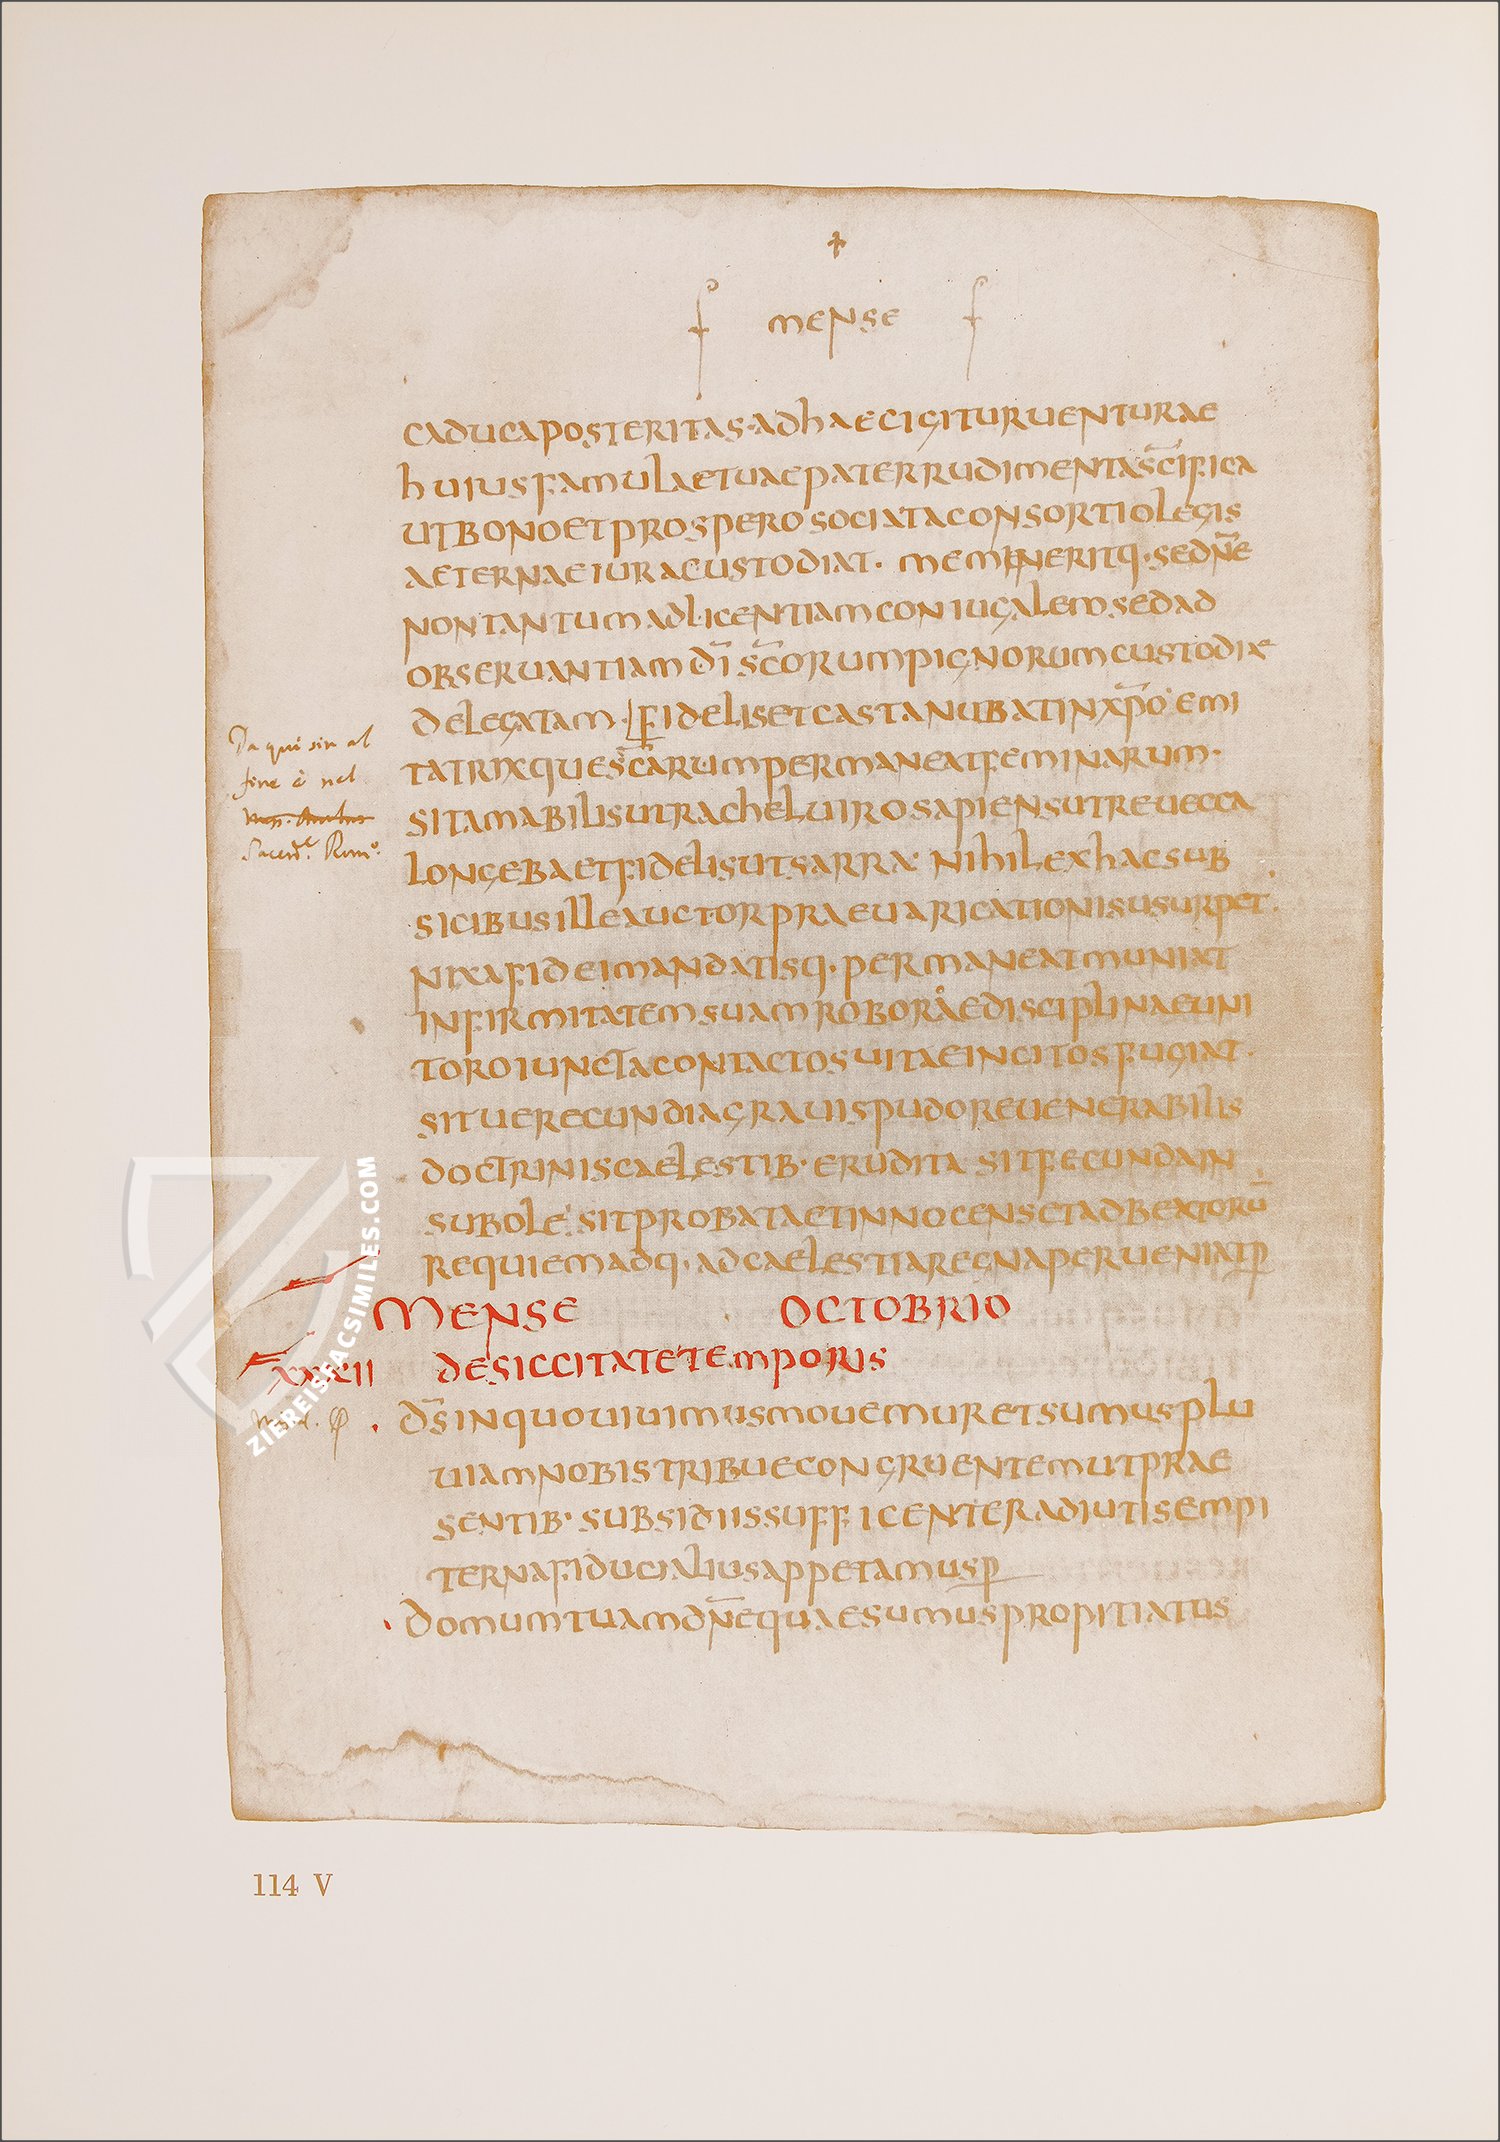 mense
caducaposteritas·adhaecigituruenturae
huiusfamulaetuaepaterrudimentasc̄ifica
utbonoetprosperosociataconsortiolegis
aeternaeiuracustodiat· memineritq·seddn̄e
nontantumadlicentiamconiugalemsedad
obseruantiamdī sc̄orumpignorumcustodiae
delegatam·fidelisetcastanubatinxp̄o·emi
tatrixquesc̄arumpermaneatfeminarum·
sitamabilisutracheluirosapiensutreuecca
longebaetfidelisutsarra· nihilexhacsub
sicibusilleauctorpraeuaricationisusurpet·
nixafideimandatisq·permaneatmuniat
infirmitatemsuamroboraedisciplinaeuni
toroiunctacontactosuitaeincitosfugiat·
situerecundiagrauispudoreuenerabilis
doctriniscaelestib·erudita·sitfecundain
subole·sitprobataetinnocensetadbeatorū
requiemadq·adcaelestiaregnaperueniatp
Da qui sin al
fine è nel
Sacerd.e Rom.o
mense octobrio
xxxii desiccitatetemporis
d̄sinquouiuimusmouemuretsumusplu
uiamnobistribuecongruentemutprae
sentib·subsidiissufficenteradiutisempi
ternafiducialiusappetamusp
domumtuamdn̄equaesumuspropitiatus
114 V
ZIEREISFACSIMILES.COM